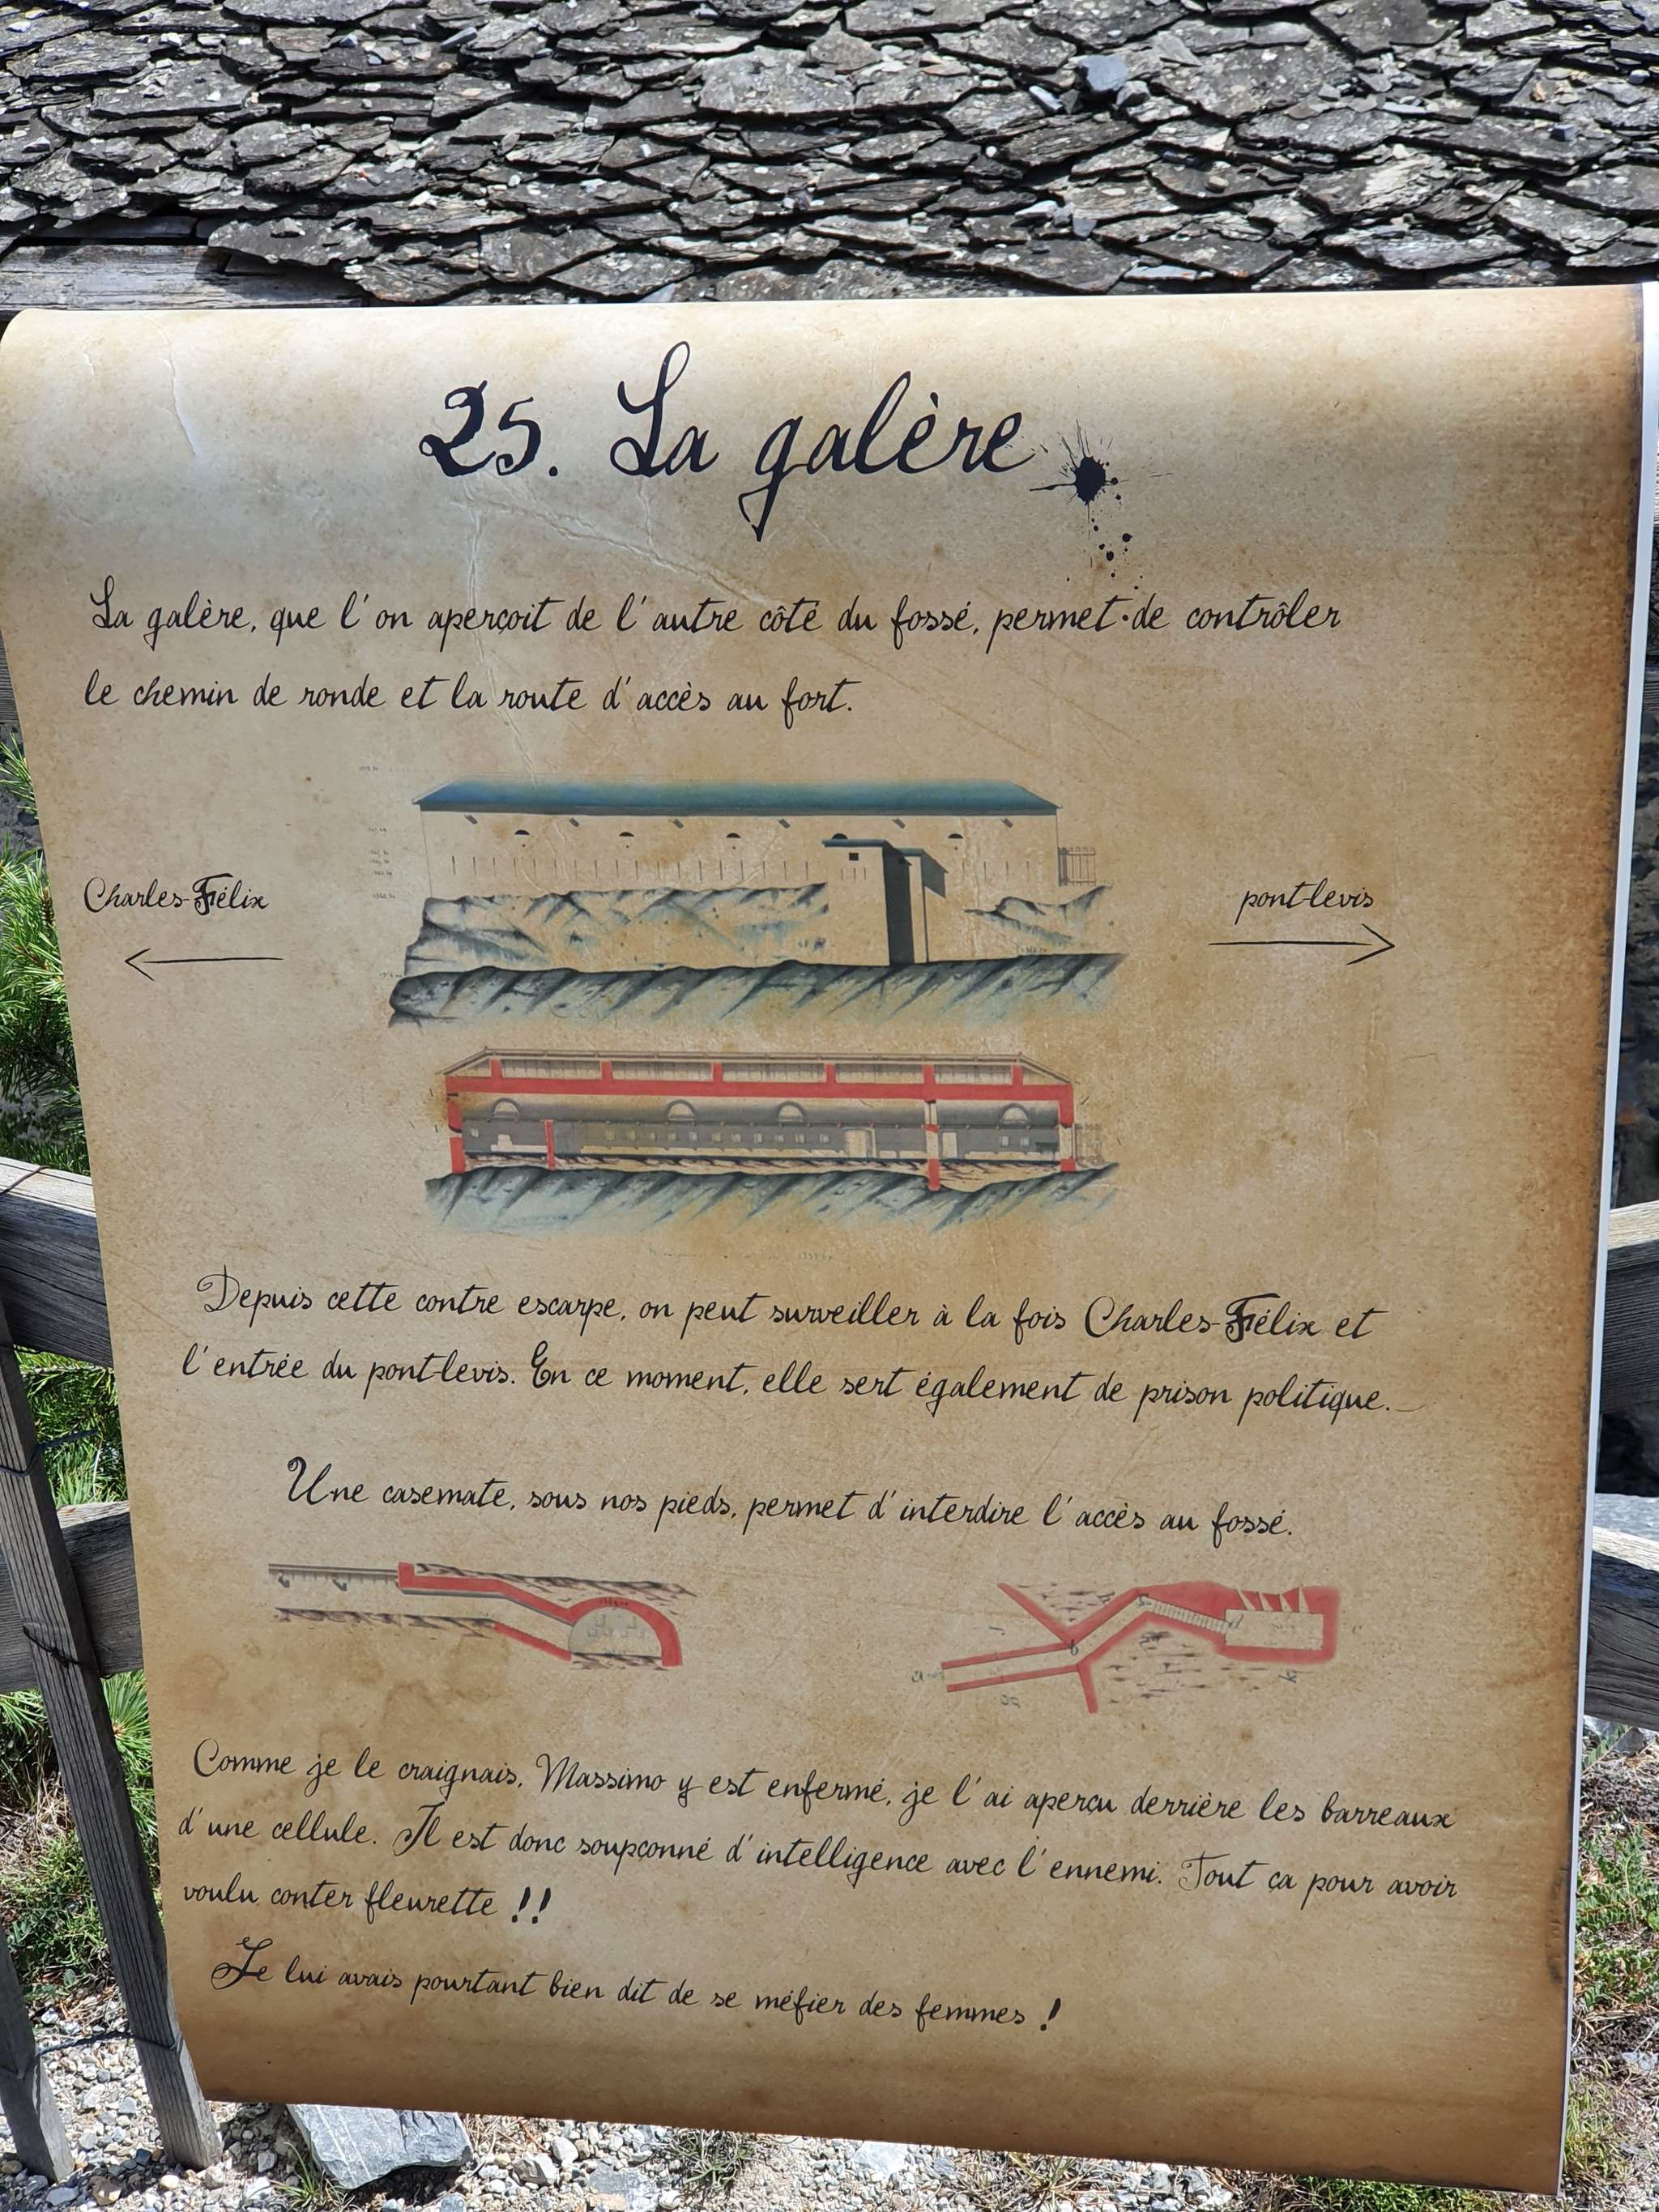 25. La galère
La galère, que l'on aperçoit de l'autre côté du fossé, permet de contrôler
le chemin de ronde et la route d'accès au fort.
Charles-Félix
pont-levis
Depuis cette contre escarpe, on peut surveiller à la fois Charles-Félix et
l'entrée du pont-levis. En ce moment, elle sert également de prison politique.
Une casemate, sous nos pieds, permet d'interdire l'accès au fossé.
Comme je le craignais, Massimo y est enfermé, je l'ai aperçu derrière les barreaux
d'une cellule. Il est donc soupçonné d'intelligence avec l'ennemi. Tout ça pour avoir
voulu conter fleurette !!
Je lui avais pourtant bien dit de se méfier des femmes !